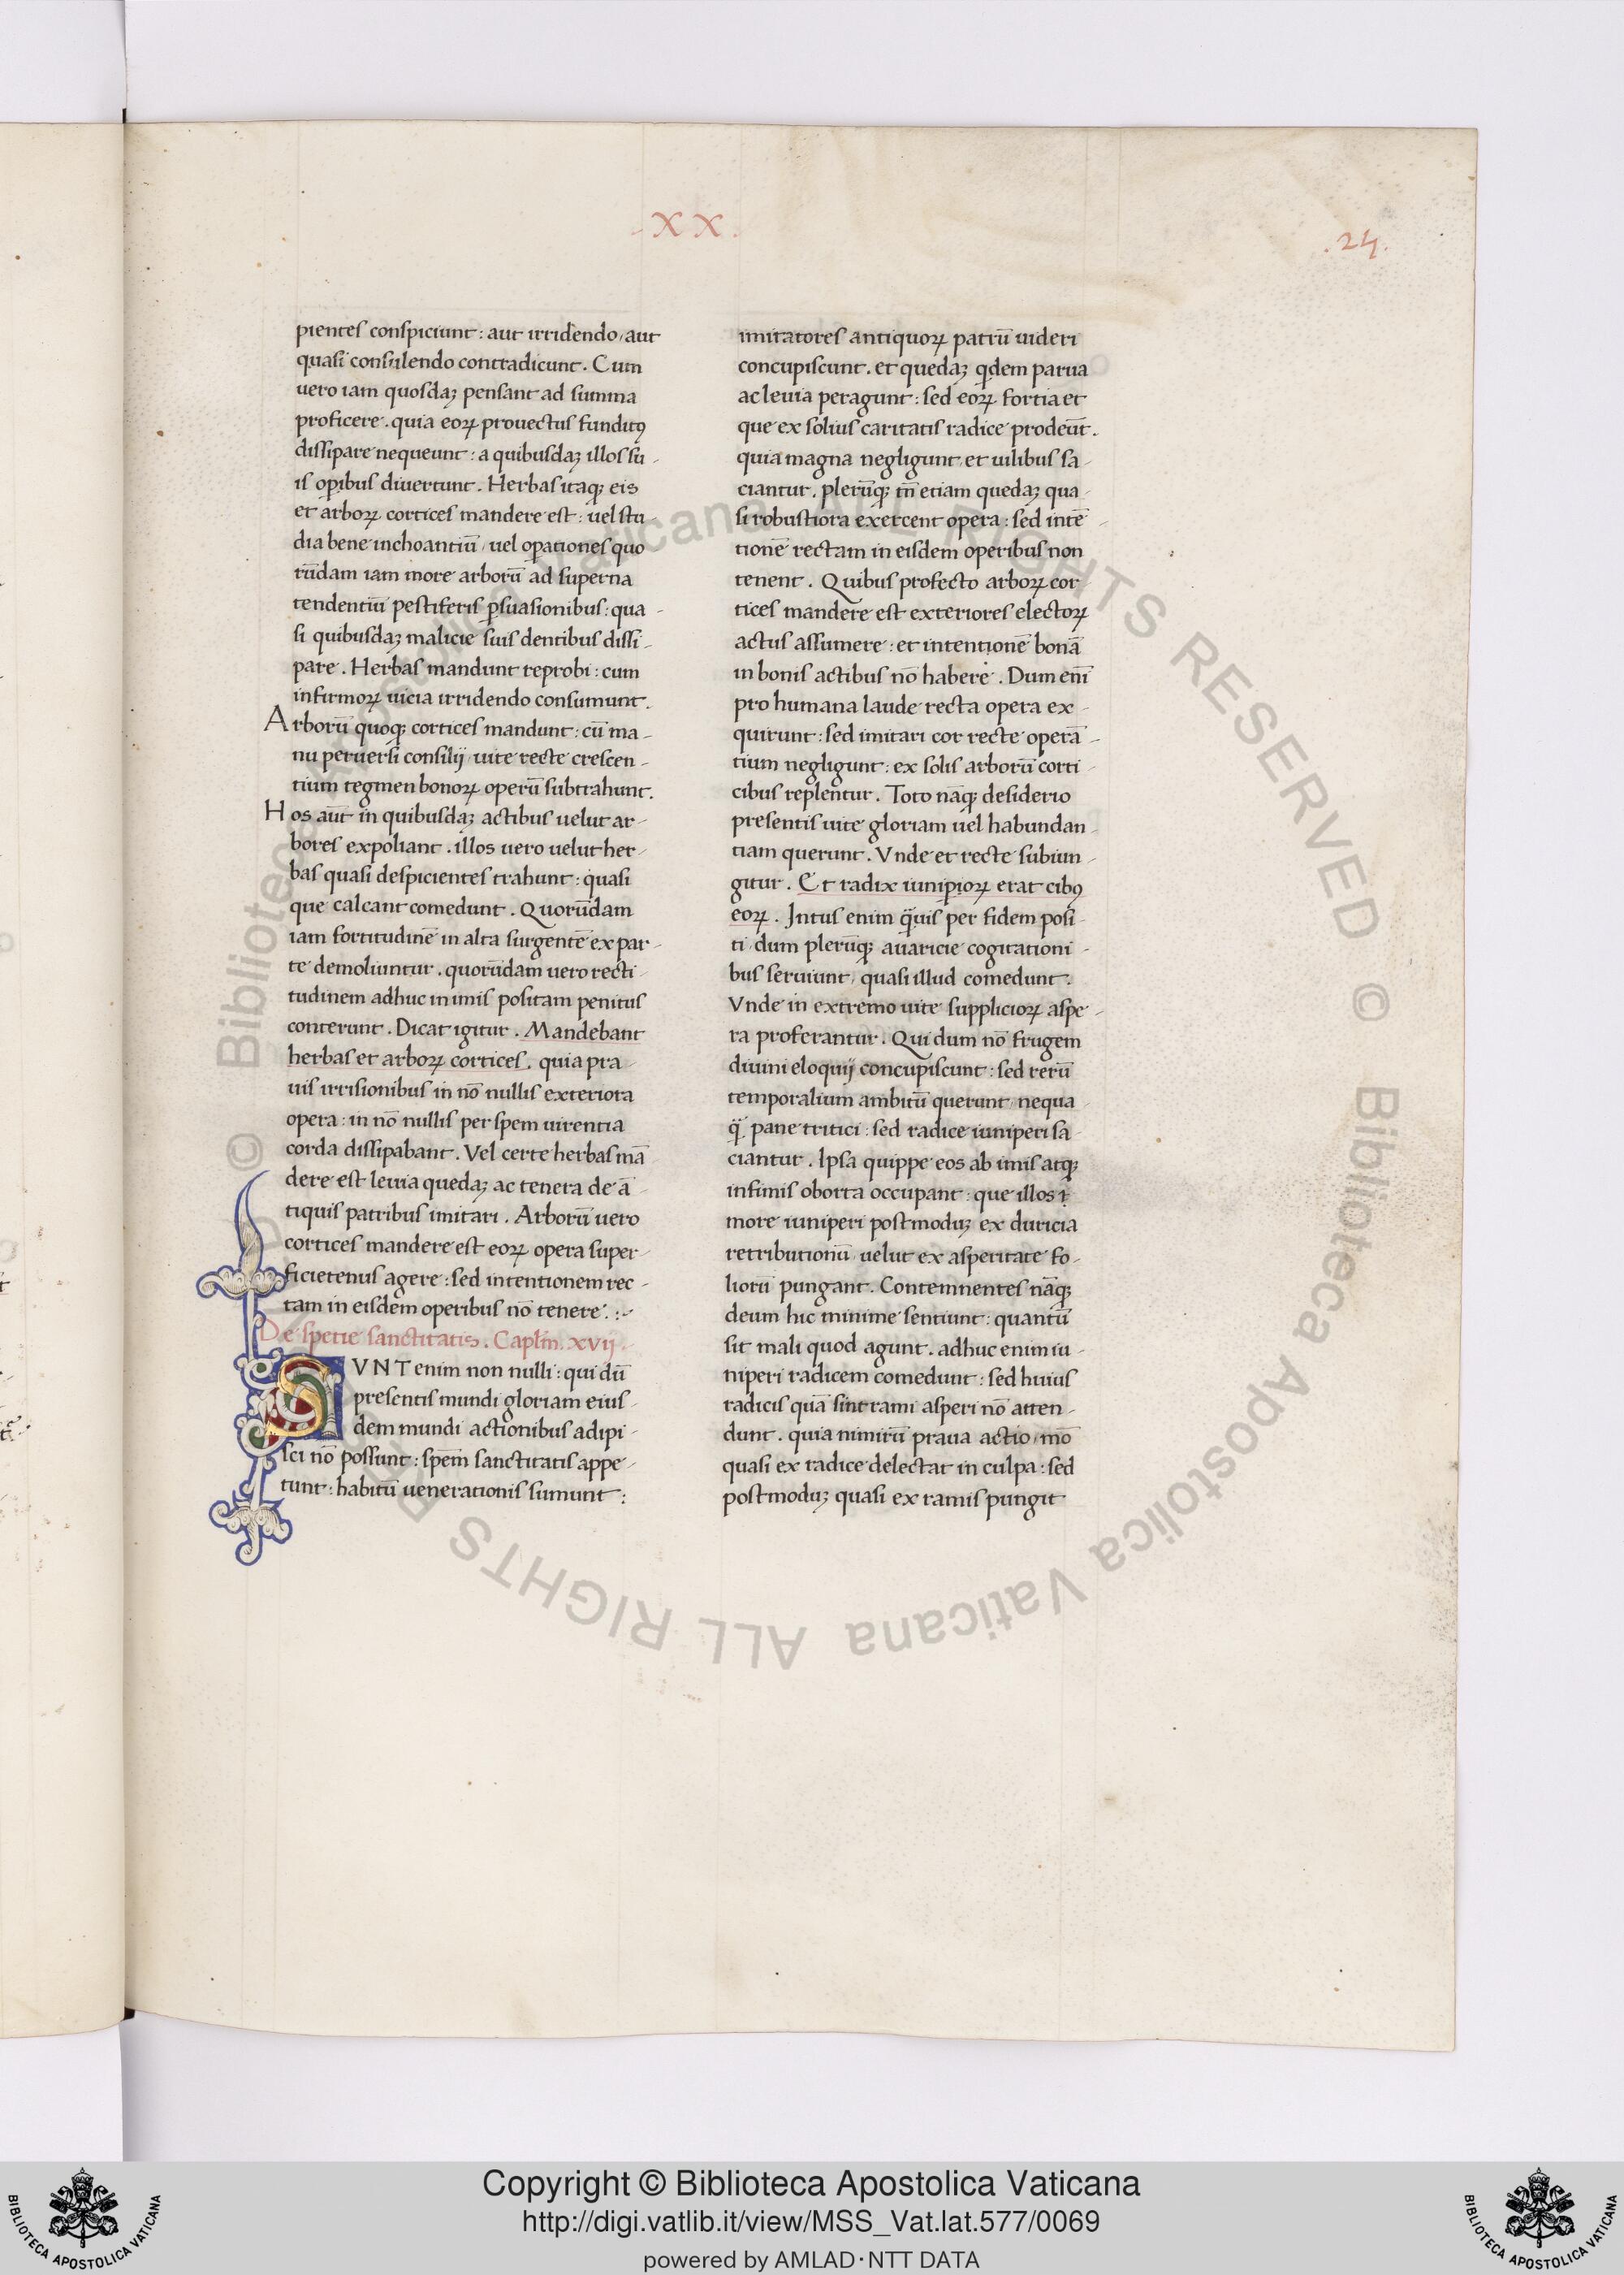 .XX.
.24.
pientes conspiciunt : aut irridendo, aut
quasi consulendo contradicunt . Cum
uero iam quosdaꝫ pensant ad summa
proficere . quia eoꝝ prouectus funditꝰ
dissipare nequeunt : a quibusdaꝫ illos su-
is oꝑibus diuertunt . Herbas itaqꝫ eis
et arboꝝ cortices mandere est : uel stu-
dia bene inchoantiū, uel oꝑationes quo
rūdam iam more arborū ad superna
tendentiū pestiferis ꝑsuasionibus : qua-
si quibusdaꝫ malicie suis dentibus dissi-
pare . Herbas mandunt reprobi : cum
infirmoꝝ uicia irridendo consumunt .
Arborū quoqꝫ cortices mandunt : cū ma-
nu peruersi consilij uite recte crescen-
tium tegmen bonoꝝ operū subtrahunt .
Hos aūt in quibusdaꝫ actibus uelut ar-
bores expoliant . illos uero uelut her-
bas quasi despicientes trahunt : quasi
que calcant comedunt . Quorūdam
iam fortitudinē in alta surgentē ex par-
te demoliuntur . quorūdam uero recti-
tudinem adhuc in imis positam penitus
conterunt . Dicat igitur . Mandebant
herbas et arboꝝ cortices . quia pra-
uis irrisionibus in nō nullis exteriora
opera : in nō nullis per spem uirentia
corda dissipabant . Vel certe herbas mā-
dere est leuia quedaꝫ ac tenera de ā-
tiquis patribus imitari . Arborū uero
cortices mandere est eoꝝ opera super-
ficietenus agere : sed intentionem rec-
tam in eisdem operibus nō tenere . :-
De spetie sanctitatis . Capłm . xvij .
SVNT enim non nulli : qui dū
presentis mundi gloriam eius-
dem mundi actionibus adipi-
sci nō possunt : spēm sanctitatis appe-
tunt : habitū uenerationis sumunt :
imitatores antiquoꝝ patrū uideri
concupiscunt . et quedaꝫ qͥdem parua
ac leuia peragunt : sed eoꝝ fortia et
que ex solius caritatis radice prodeūt .
quia magna negligunt, et uilibus sa-
ciantur . plerūqꝫ tn̄ etiam quedaꝫ qua-
si robustiora exercent opera : sed intē-
tionē rectam in eisdem operibus non
tenent . Quibus profecto arboꝝ cor
tices mandere est exteriores electoꝝ
actus assumere : et intentionē bonā
in bonis actibus nō habere . Dum eni̅
pro humana laude recta opera ex-
quirunt : sed imitari cor recte operā-
tium negligunt : ex solis arborū corti-
cibus replentur . Toto nāqꝫ desiderio
presentis uite gloriam uel habundan-
tiam querunt . Vnde et recte subiun-
gitur . Et radix iuniꝑioꝝ erat cibꝰ
eoꝝ . Intus enim qͣuis per fidem posi-
ti, dum plerūqꝫ auaricie cogitationi-
bus seruiunt, quasi illud comedunt .
Vnde in extremo uite supplicioꝝ aspe-
ra proferantur . Qui dum nō frugem
diuini eloquij concupiscunt : sed rerū
temporalium ambitū querunt, nequa-
qͣ pane tritici : sed radice iuniperi sa-
ciantur . Ipsa quippe eos ab imis atqꝫ
infimis oborta occupant : que illos ī
more iuniperi postmoduꝫ ex duricia
retributionū, uelut ex asperitate fo-
liorū pungant . Contemnentes nāqꝫ
deum hic minime sentiunt : quantū
sit mali quod agunt . adhuc enim iu-
niperi radicem comedunt : sed huius
radicis quā sint rami asperi nō atten-
dunt . quia nimirū praua actio, mō
quasi ex radice delectat in culpa : sed
postmoduꝫ quasi ex ramis pungit
© Biblioteca Apostolica Vaticana ALL RIGHTS RESERVED
© Biblioteca Apostolica Vaticana ALL RIGHTS RESERVED
Copyright © Biblioteca Apostolica Vaticana
http://digi.vatlib.it/view/MSS_Vat.lat.577/0069
powered by AMLAD·NTT DATA
BIBLIOTECA APOSTOLICA VATICANA
BIBLIOTECA APOSTOLICA VATICANA